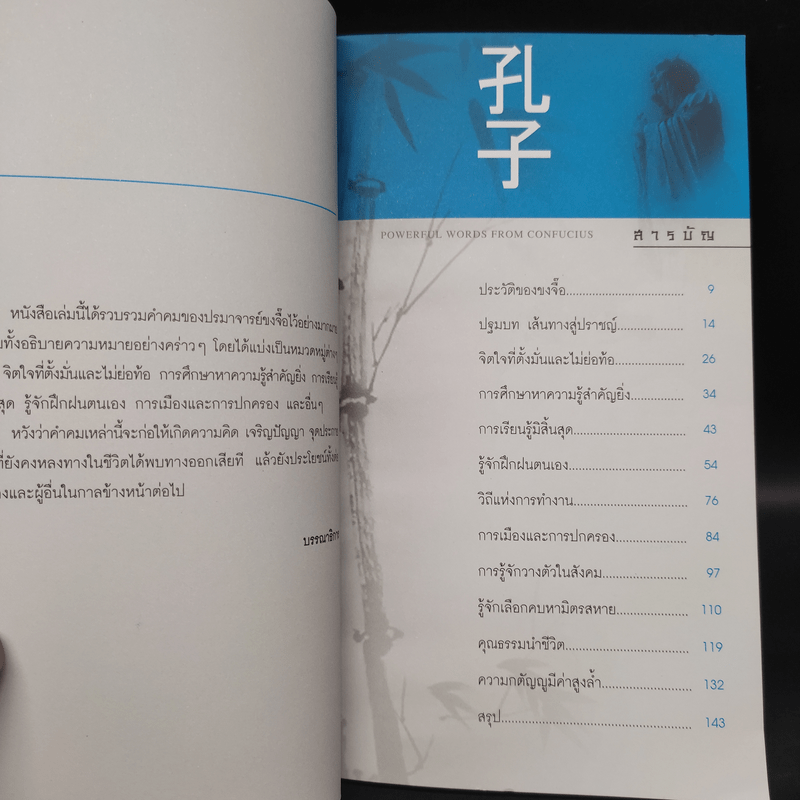 หนังสือเล่มนี้ได้รวบรวมคำคมของปรมาจารย์ขงจื๊อไว้อย่างมากมาย
ทั้งอธิบายความหมายอย่างคร่าวๆ โดยได้แบ่งเป็นหมวดหมู่ต่างๆ
จิตใจที่ตั้งมั่นและไม่ย่อท้อ การศึกษาหาความรู้สำคัญยิ่ง การเรียนรู้
สุด รู้จักฝึกฝนตนเอง การเมืองและการปกครอง และอื่นๆ
หวังว่าคำคมเหล่านี้จะก่อให้เกิดความคิด เจริญปัญญา จุดประกาย
ที่ยังคงหลงทางในชีวิตได้พบทางออกเสียที แล้วยังประโยชน์ทั้งต่อ
และผู้อื่นในกาลข้างหน้าต่อไป
บรรณาธิการ
孔
子
POWERFUL WORDS FROM CONFUCIUS สารบัญ
ประวัติของขงจื๊อ 9
ปฐมบท เส้นทางสู่ปราชญ์ 14
จิตใจที่ตั้งมั่นและไม่ย่อท้อ 26
การศึกษาหาความรู้สำคัญยิ่ง 34
การเรียนรู้มิสิ้นสุด 43
รู้จักฝึกฝนตนเอง 54
วิถีแห่งการทำงาน 76
การเมืองและการปกครอง 84
การรู้จักวางตัวในสังคม 97
รู้จักเลือกคบหามิตรสหาย 110
คุณธรรมนำชีวิต 119
ความกตัญญูมีค่าสูงล้ำ 132
สรุป 143